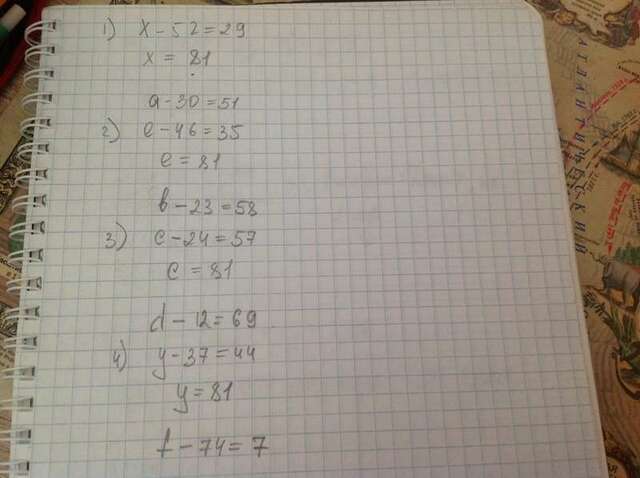 1) x - 52 = 29
x = 81
a - 30 = 51
2) e - 46 = 35
e = 81
b - 23 = 58
3) c - 24 = 57
c = 81
d - 12 = 69
4) y - 37 = 44
y = 81
f - 74 = 7
АТЛАНТИЧЕСКИЙ